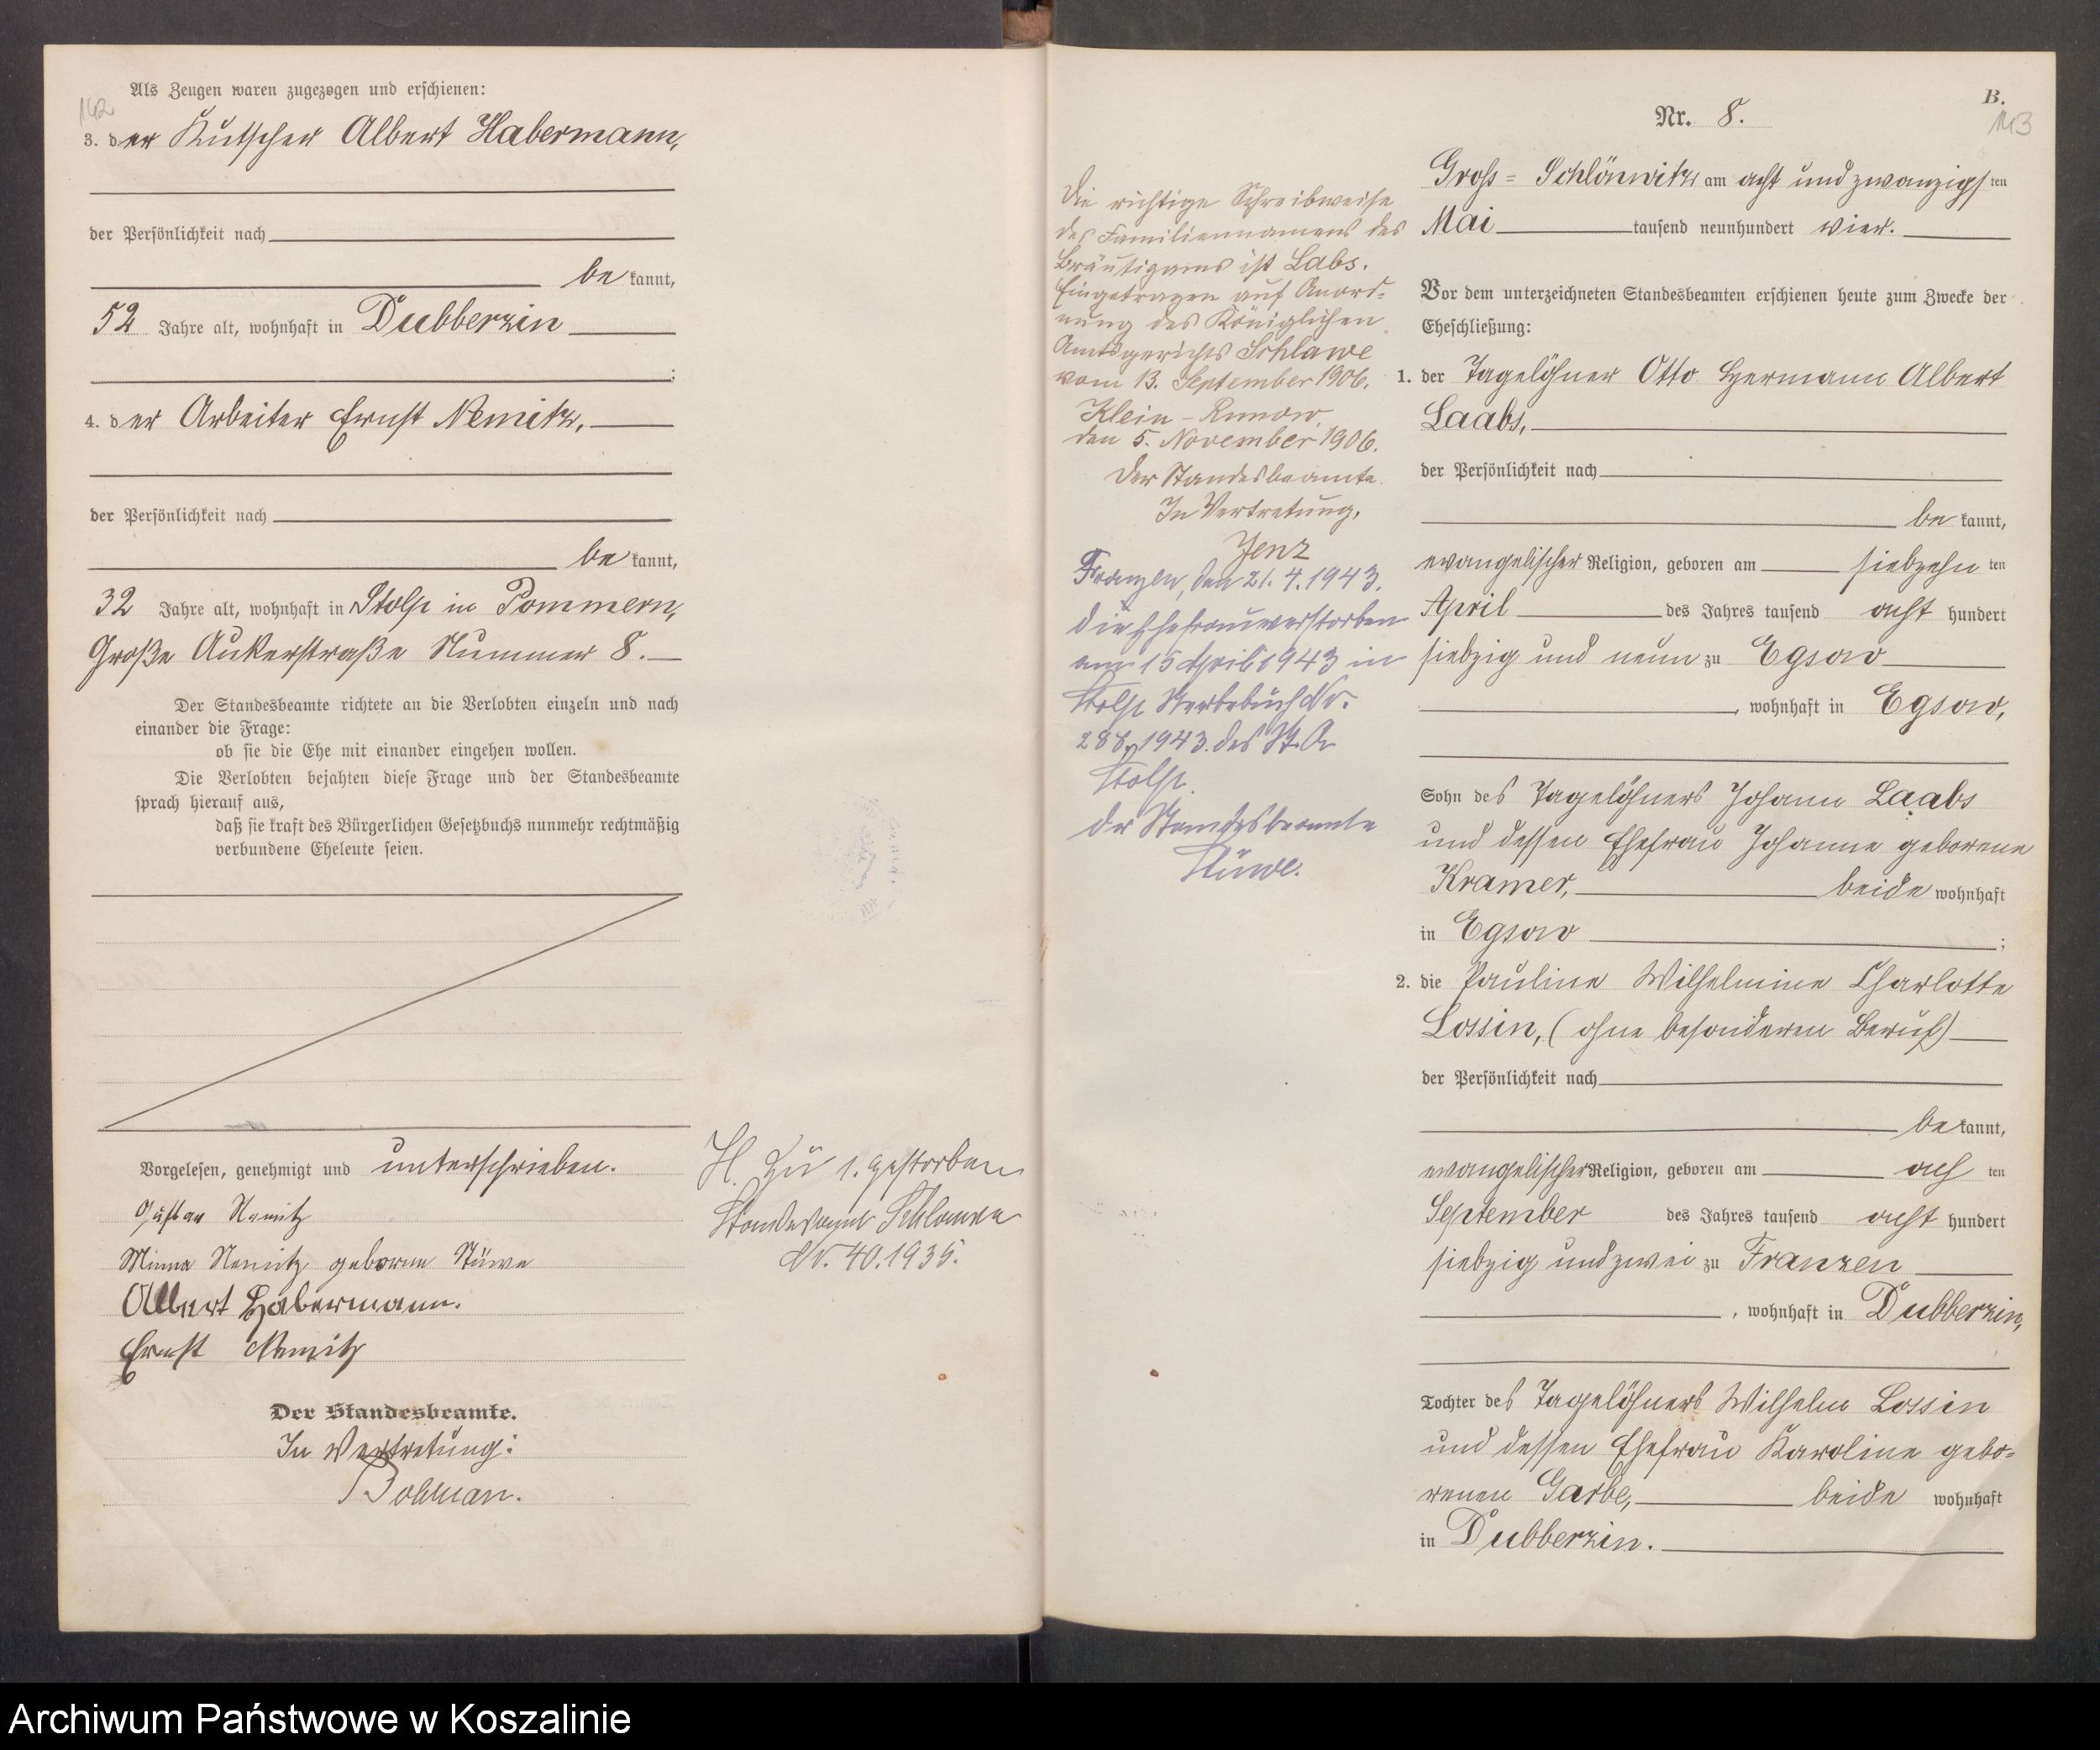 142
Als Zeugen waren zugezogen und erschienen:
3. der Kutscher Albert Habermann,
der Persönlichkeit nach
be kannt,
52 Jahre alt, wohnhaft in Dubberzin
;
4. der Arbeiter Ernst Nemitz,
der Persönlichkeit nach
be kannt,
32 Jahre alt, wohnhaft in Stolp in Pommern,
Große Aukerstraße Nummer 8.
Der Standesbeamte richtete an die Verlobten einzeln und nach
einander die Frage:
ob sie die Ehe mit einander eingehen wollen.
Die Verlobten bejahten diese Frage und der Standesbeamte
sprach hierauf aus,
daß sie kraft des Bürgerlichen Gesetzbuchs nunmehr rechtmäßig
verbundene Eheleute seien.
Vorgelesen, genehmigt und unterschrieben.
Gustav Nemitz
Minna Nemitz geborne Stüwe
Albert Habermann.
Ernst Nemitz
Der Standesbeamte.
In Vertretung:
Bohman.
H. Zu 1. gestorben
Standesamt Schlawe
Nr. 40.1935.
B.
143
Nr. 8.
Gross=Schlönwitz, am acht und zwanzigsten
Mai tausend neunhundert vier.
Vor dem unterzeichneten Standesbeamten erschienen heute zum Zwecke der
Eheschließung:
1. der Tagelöhner Otto Hermann Albert
Laabs,
der Persönlichkeit nach
be kannt,
evangelischer Religion, geboren am siebzehn ten
April des Jahres tausend acht hundert
siebzig und neun zu Egsow
, wohnhaft in Egsow,
Sohn des Tagelöhners Johann Laabs
und dessen Ehefrau Johanne geborene
Kramer, beide wohnhaft
in Egsow ;
2. die Pauline Wilhelmine Charlotte
Lossin, (ohne besonderen Beruf)
der Persönlichkeit nach
be kannt,
evangelischer Religion, geboren am ach ten
September des Jahres tausend acht hundert
siebzig und zwei zu Franzen
, wohnhaft in Dubberzin,
Tochter des Tagelöhners Wilhelm Lossin
und dessen Ehefrau Karoline gebo=
renen Garbe, beide wohnhaft
in Dubberzin.
Die richtige Schreibweise
des Familiennamens des
Bräutigams ist Labs.
Eingetragen auf Anord=
nung des Königlichen
Amtsgerichts Schlawe
vom 13. September 1906.
Klein-Runow,
den 5. November 1906.
Der Standesbeamte.
In Vertretung,
Jenz
Franzen, den 21.4.1943.
die Ehefrau verstorben
am 15 April 1943 in
Stolp Sterbebuch Nr.
288, 1943. des St. A
Stolp.
Der Standesbeamte
Stüwe.
Archiwum Państwowe w Koszalinie